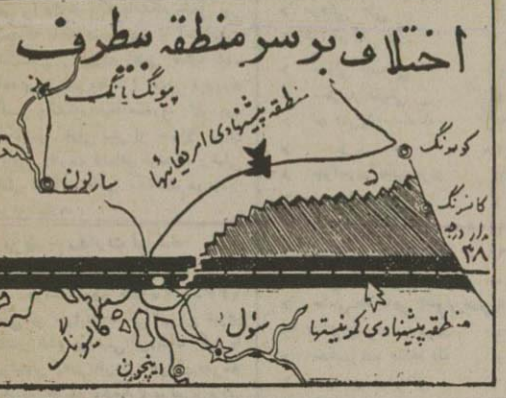 اختلاف بر سر منطقه بیطرف
پیونگ یانگ
منطقه پیشنهادی امریکائیها
کوسونگ
ساریون
کانسونگ
مدار درجه
۳۸
منطقه پیشنهادی کمونیستها
سئول
اینچون